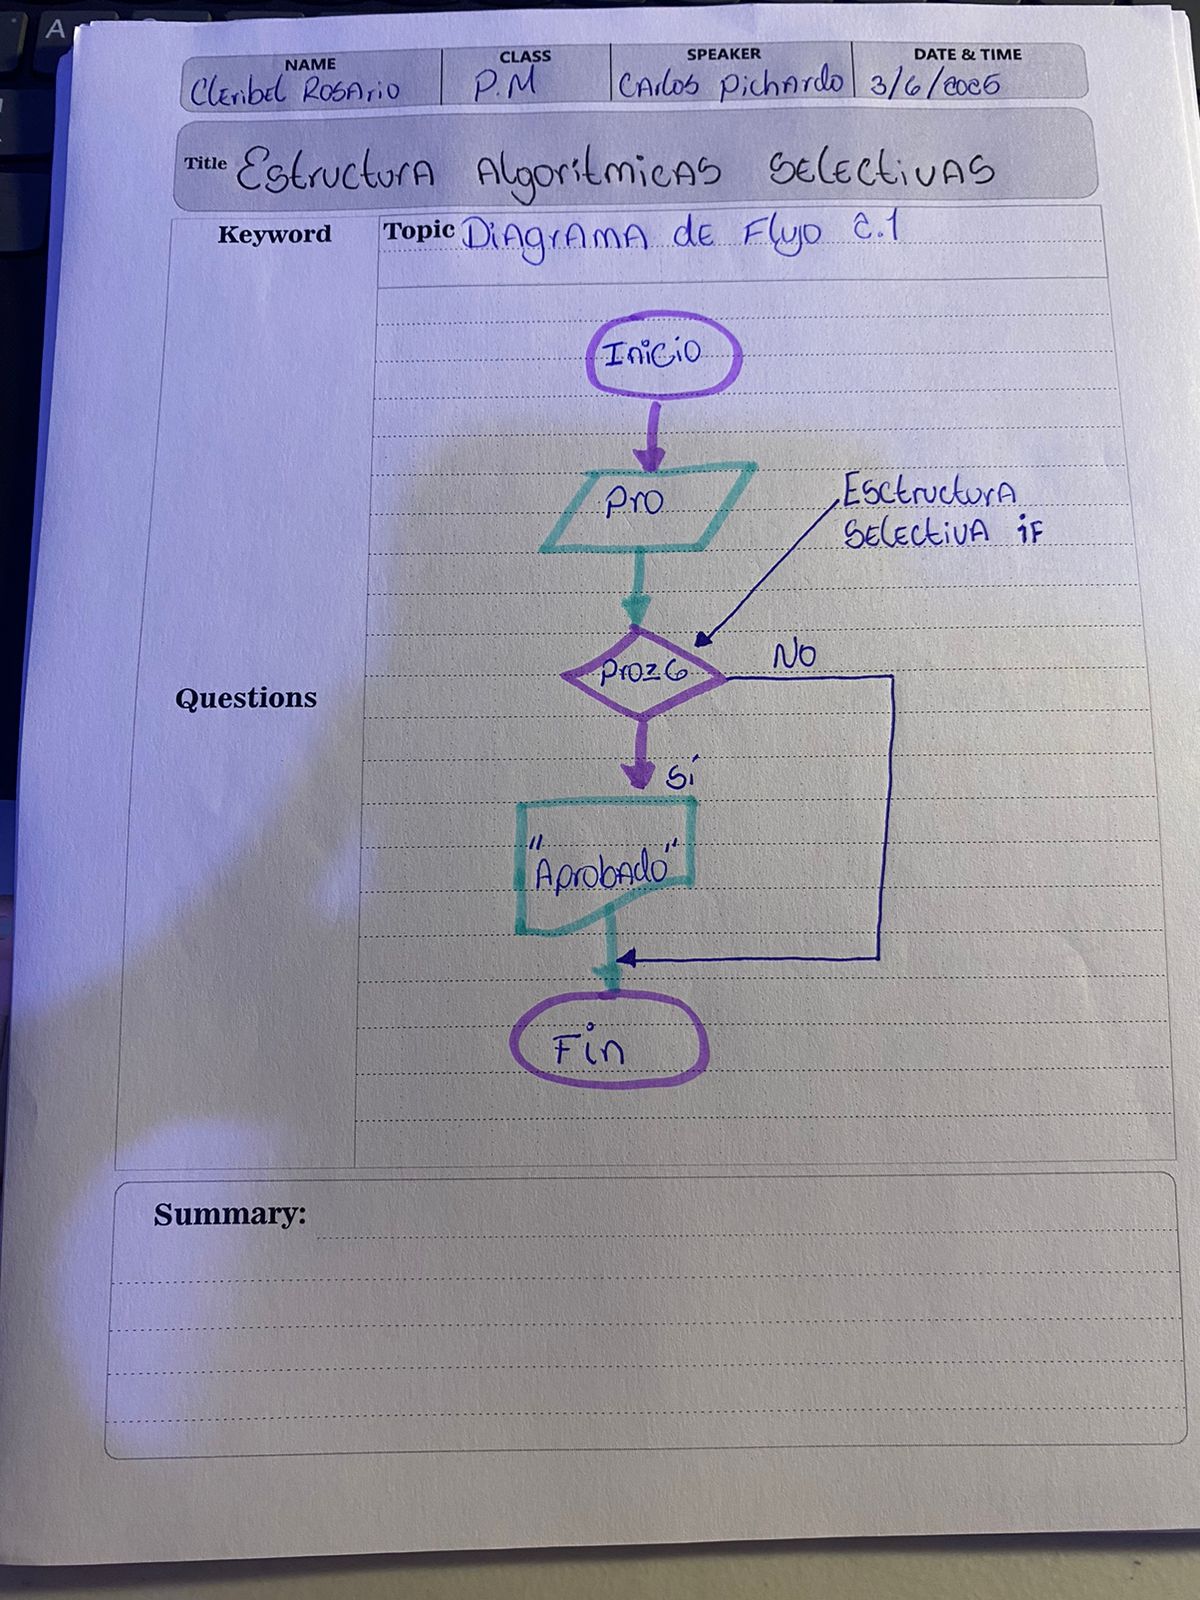 NAME CLASS SPEAKER DATE & TIME
Cleribel Rosario P.M Carlos Pichardo 3/6/2025
Title Estructura Algorítmicas Selectivas
Keyword Topic Diagrama de Flujo 2.1
Inicio
Pro
Esctructura
Selectiva if
Pro≥6 No
Questions
Sí
"Aprobado"
Fin
Summary:
A